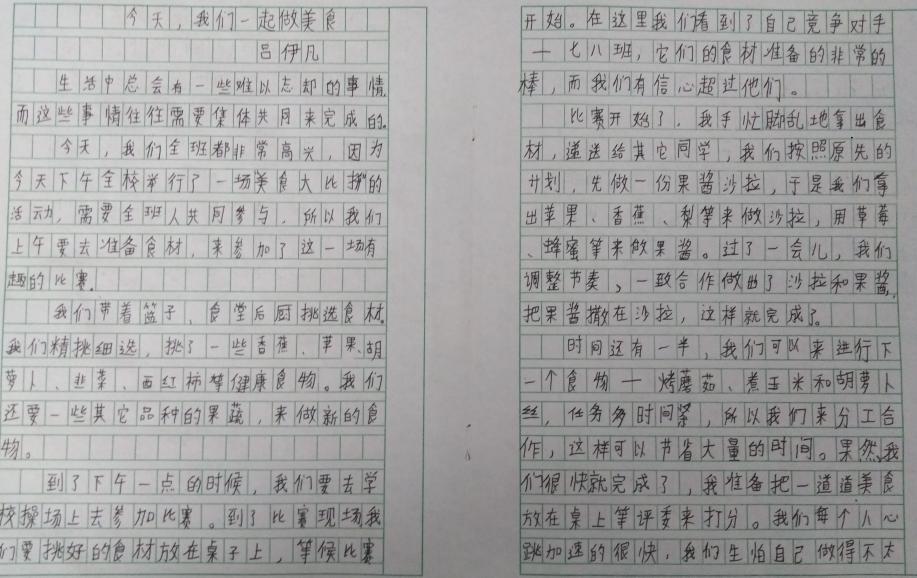 今天，我们一起做美食
吕伊凡
生活中总会有一些难以忘却的事情，
而这些事情往往需要集体共同来完成的。
今天，我们全班都非常高兴，因为
今天下午全校举行了一场美食大比拼的
活动，需要全班人共同参与，所以我们
上午要去准备食材，来参加了这一场有
趣的比赛。
我们带着篮子、食堂后厨挑选食材。
我们精挑细选，挑了一些香蕉、苹果、胡
萝卜、韭菜、西红柿等健康食物。我们
还要一些其它品种的果蔬，来做新的食
物。
到了下午一点的时候，我们要去学
校操场上去参加比赛。到了比赛现场我
们要挑好的食材放在桌子上，等候比赛
开始。在这里我们看到了自己竞争对手
一七八班，它们的食材准备的非常的
棒，而我们有信心超过他们。
比赛开始了，我手忙脚乱地拿出食
材，递送给其它同学，我们按照原先的
计划，先做一份果酱沙拉，于是我们拿
出苹果、香蕉、梨等来做沙拉，用草莓
、蜂蜜等来做果酱。过了一会儿，我们
调整节奏，一致合作做出了沙拉和果酱，
把果酱撒在沙拉，这样就完成了。
时间还有一半，我们可以来进行下
一个食物一烤蘑菇、煮玉米和胡萝卜
丝，任务多时间紧，所以我们来分工合
作，这样可以节省大量的时间。果然，我
们很快就完成了，我准备把一道道美食
放在桌上等评委来打分。我们每个人心
跳加速的很快，我们生怕自己做得不太